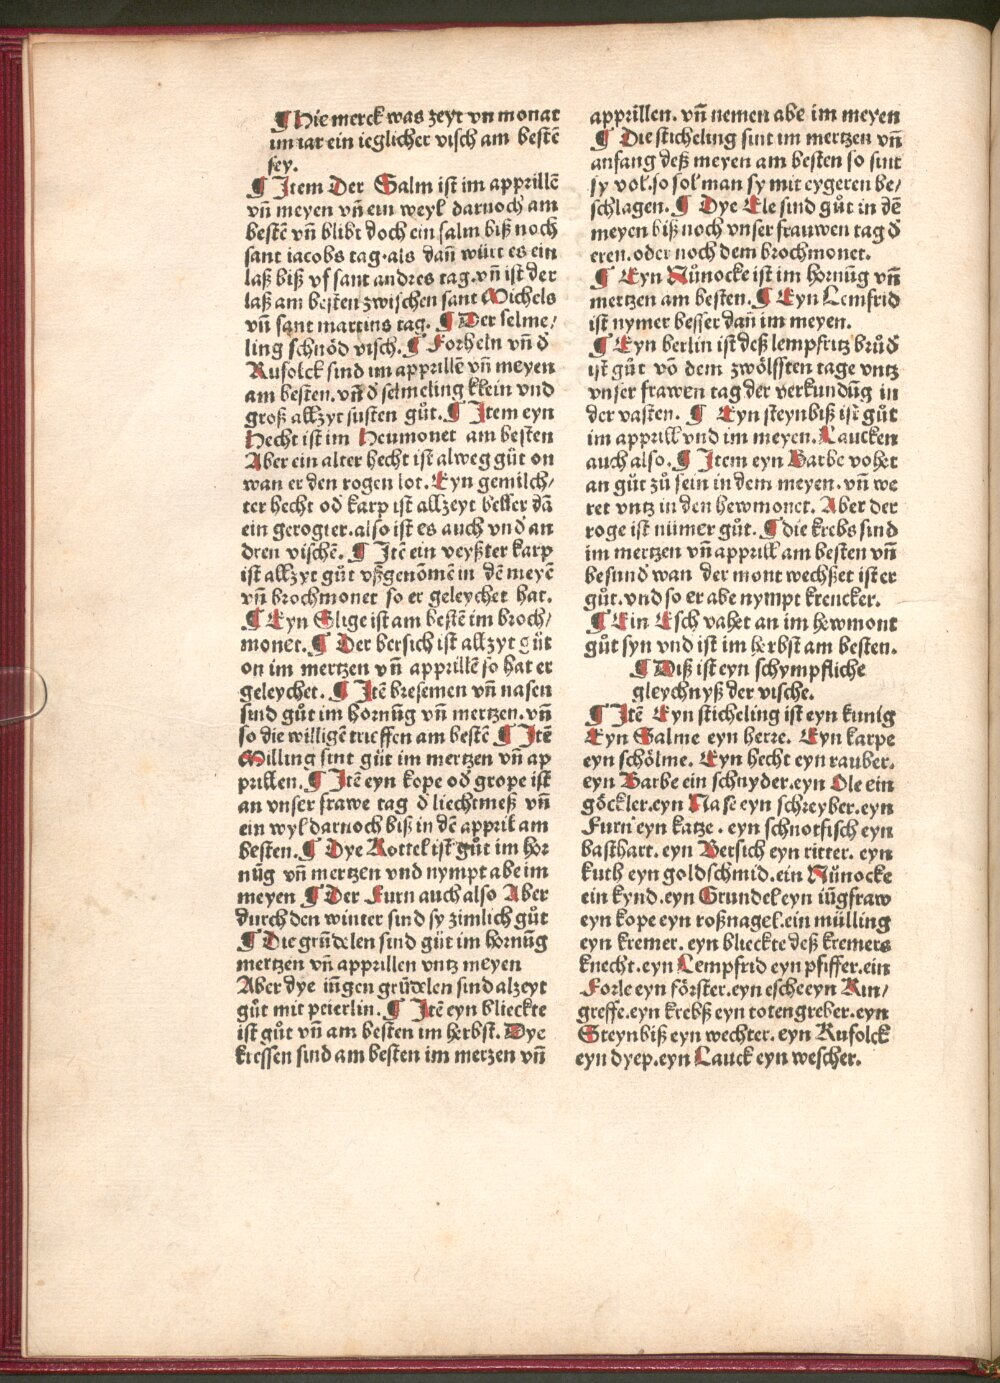 ¶ Hie merck was zeyt vn monat
im iar ein ieglicher visch am bestē
sey.
¶ Item Der Salm ist im apprillē
vñ meyen vñ ein weyl darnoch am
bestē vñ blibt doch ein salm biß noch
sant iacobs tag·als dañ würt es ein
laß biß vf sant andres tag.vñ ist der
laß am besten zwischen sant Michels
vñ sant martins tag. ¶ Der selme/
ling schnöd visch.¶ Forheln vñ đ
Rufolck sind im apprillē vñ meyen
am besten.vñ đ selmeling klein vnd
groß allzyt susten gůt.¶ Item eyn
Hecht ist im Heumonet am besten
Aber ein alter hecht ist alweg gůt on
wan er den rogen lot. Eyn gemilch/
ter hecht ođ karp ist allzeyt besser dā
ein gerogter.also ist es auch vnđ an
dren vischē. ¶ Itē ein veyßter karp
ist allzyt gůt vßgenōmē in dē meyē
vñ brochmonet so er geleychet hat.
¶ Eyn Slige ist am bestē im broch/
monet.¶ Der bersich ist allzyt gůt
on im mertzen vñ apprillē so hat er
geleychet. ¶ Itē bresemen vñ nasen
sind gůt im hornūg vñ mertzen.vñ
so die willigē trieffen am bestē ¶ Itē
Milling sint gůt im mertzen vñ ap
prillen.¶ Itē eyn kope ođ grope ist
an vnser frawe tag đ liechtmeß vñ
ein wyl darnoch biß in dē appril am
besten.¶ Dye Rottel ist gůt im hor
nūg vñ mertzen vnd nympt abe im
meyen ¶ Der Furn auch also Aber
durch den winter sind sy zimlich gůt
¶ Die grūdelen sind gůt im hornūg
mertzen vñ apprillen vntz meyen
Aber dye iūgen grūdelen sind alzeyt
gůt mit peterlin.¶ Itē eyn blieckte
ist gůt vñ am besten im herbst. Dye
kressen sind am besten im merzen vñ
apprillen. vñ nemen abe im meyen
¶ Die sticheling sint im mertzen vñ
anfang deß meyen am besten so sint
sy vol.so sol man sy mit eygeren be/
schlagen.¶ Dye Ele sind gůt in dē
meyen biß noch vnser frauwen tag đ
eren.oder noch dem brochmonet.
¶ Eyn Nůnocke ist im hornūg vñ
mertzen am besten.¶ Eyn Lemfrid
ist nymer besser dañ im meyen.
¶ Eyn berlin ist deß lempfritz brůđ
ist gůt vō dem zwölfften tage vntz
vnser frawen tag der verkundūg in
der vasten. ¶ Eyn steynbiß ist gůt
im apprill vnd im meyen.Laucken
auch also.¶ Item eyn Barbe vohet
an gůt zů sein in dem meyen.vñ we
ret vntz in den hewmonet. Aber der
roge ist nümer gůt.¶ die krebs sind
im mertzen vñ apprill am besten vñ
besund wan der mont wechßet ist er
gůt.vnd so er abe nympt krencker.
¶ Ein Esch vahet an im hewmont
gůt syn vnd ist im herbst am besten.
¶ Diß ist eyn schympfliche
gleychnyß der vische.
¶ Itē Eyn sticheling ist eyn kunig
Eyn Salme eyn herre. Eyn karpe
eyn schölme. Eyn hecht eyn rauber.
eyn Barbe ein schnyder.eyn Ole ein
göckler.eyn Nase eyn schreyber.eyn
Furn eyn katze·eyn schnotfisch eyn
basthart. eyn Bersich eyn ritter. eyn
kutb eyn goldschmid.ein Nůnocke
ein kynd.eyn Grundel eyn iūgfraw
eyn kope eyn roßnagel.ein mülling
eyn kremer. eyn blieckte deß kremers
knecht.eyn Lempfrid eyn pfiffer.ein
Forle eyn förster.eyn esche eyn Rin/
greffe.eyn krebß eyn totengreber.eyn
Steynbiß eyn wechter. eyn Rufolck
eyn dyep.eyn Lauck eyn wescher.